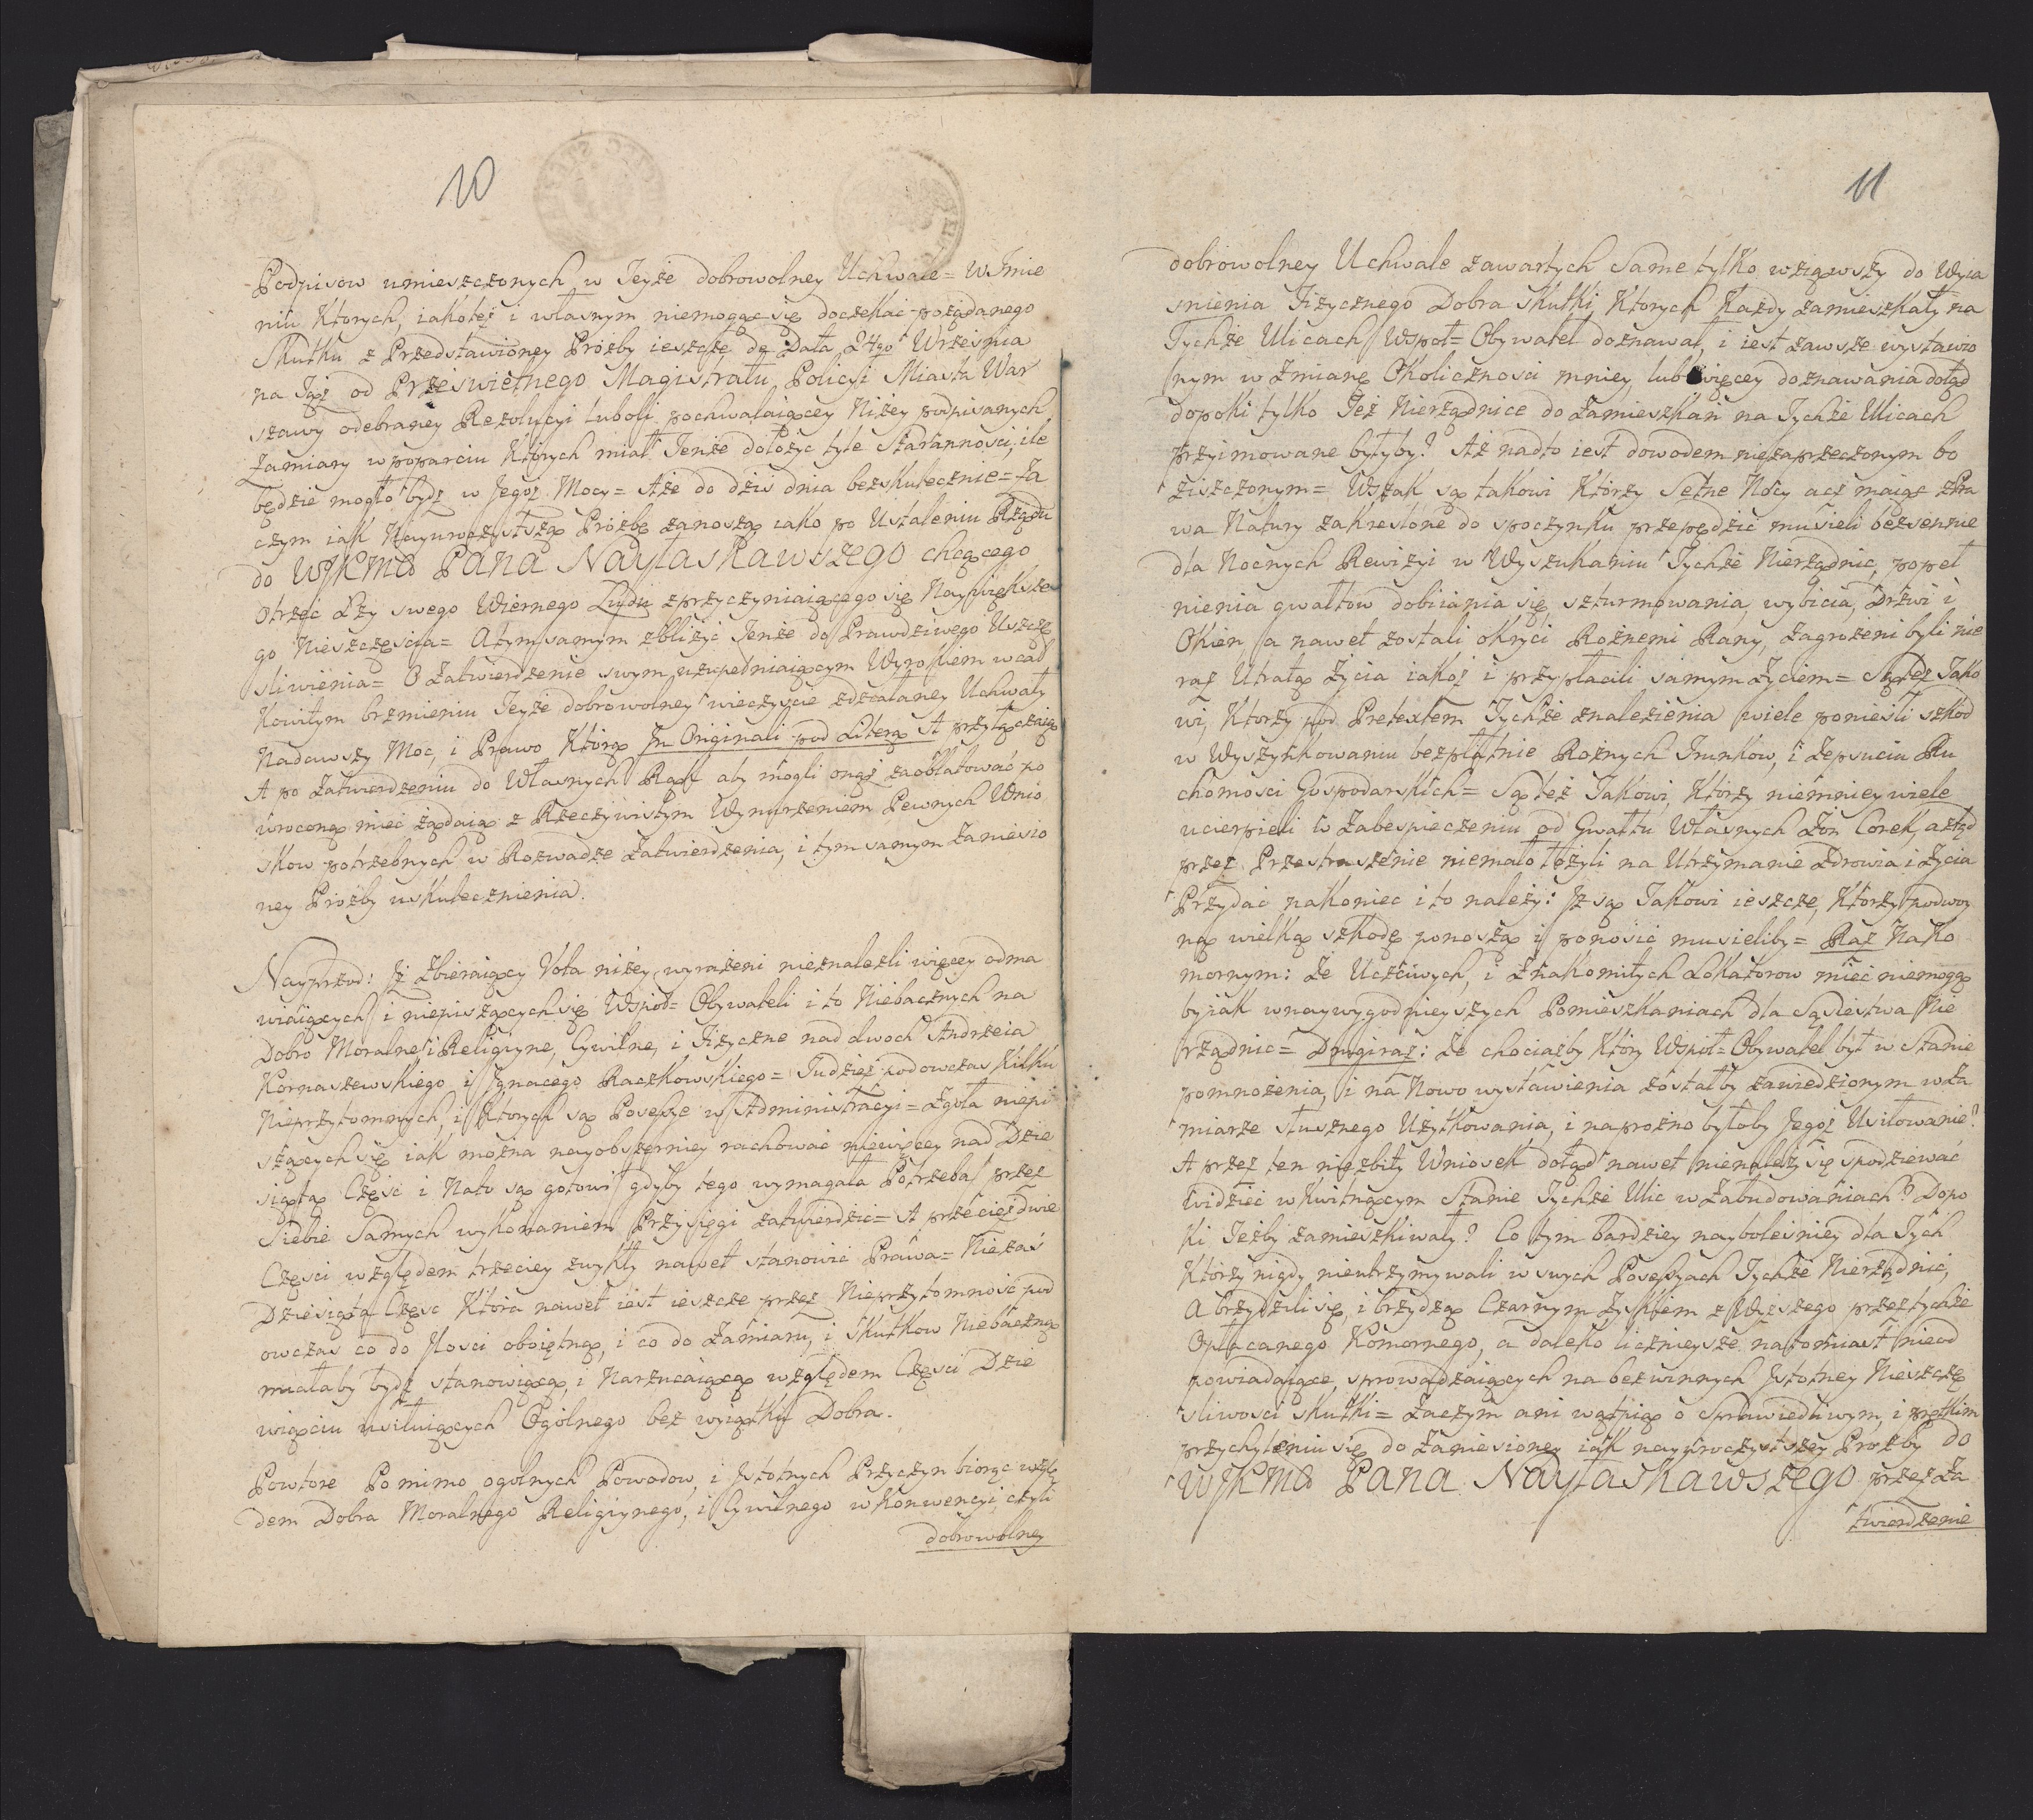 10
Podpisow umieszczonych w Teyże dobrowolney Uchwale = W Imie
niu Ktorych, iakoteż i własnym niemogąc się doczekać pożądanego
Skutku z Przedstawioney Prożby ieszcze de Data 24go Września
na Jąż od Prześwietnego Magistratu Policyi Miasta War
szawy odebraney Rezolucyi luboli pochwalaiącey Niżey podpisanych
Zamiary w poparciu Ktorych miał Tenże dołożyc tyle Staranności, ile
będzie mogło bydź w Jegoż Mocy = Aże do dziś dnia bezskutecznie = Za
czym iak Nayuroczystszą Proźbę zanoszą iako po Ustaleniu Rządu
do WJKMci PANA NAYŁASKAWSZEGO chcącego
otrzeć Łzy swego Wiernego Ludu z przyczyniaiącego się Naywiększe
go Nieszczęscia = A tym samym zbliżyć Tenże do Prawdziwego Uszczę
sliwienia = O Zatwierdzenie swym uzupełniaiącym Wyrokiem w cał
kowitym brzmieniu Teyże dobrowolney wieczyscie zdziałaney Uchwały
Nadawszy Moc, i Prawo Którą In Originali pod Literą A przyłączaią
A po Zatwierdzeniu do Własnych Rąk aby mogli onąż zaoblatować po
wroconą mieć żądaią z Rzeczywistym Wynurzeniem Pewnych Wnio
skow potrzebnych w Rozwadze Zatwierdzenia, i tym samym Zaniesio
ney Prożby uskutecznienia.
Nayprzod: Jż Zbieraiący Vota niżey wyrażeni nieznalezli więcey odma
wiaiących i niepiszących się Wspoł = Obywateli i to Niebacznych na
Dobro Moralne i Religiyne, Cywilne, i Fizyczne nad dwoch Andrzeia
Kornaszewskiego i Jgnacego Raczkowskiego = Tudzież podowczas Kilku
Nieprzytomnych, i Ktorych są Possesye w Administracyi = Zgoła niepi
szących się iak można nayobszerniey rachować niewięcey nad Dzie
siątą Częsc i Nato są gotowi gdyby tego wymagała Potrzeba przez
Siebie Samych wykonaniem Przysięgi zatwierdzić = A przecież dwie
Częsci względem trzeciey zwykły nawet stanowić Prawa = Niezaś
Dziesiąta Częsc Która nawet iest ieszcze przez Nieprzytomność pod
owczas co do Jlosci oboiętną, i co do Zamiaru, i Skutkow Niebaczną
miałaby bydź stanowiącą, i Narzucaiącą względem Częsci Dzie
więciu usiłuiących Ogolnego bez wyiątku Dobra.
Powtore Pomimo ogolnych Powodow, i Jstotnych Przyczyn biorąc wzglę
dem Dobra Moralnego Religiynego, i Cywilnego w Konwencyi, czyli
dobrowolney
11
dobrowolney Uchwale zawartych Same tylko wziąwszy do Wyia
snienia Fizycznego Dobra Skutki, Ktorych Każdy zamieszkały na
Tychże Ulicach Wspoł = Obywatel doznawał, i iest zawsze wystawio
nym w Zmianę Okolicznosci mniey lub więcey doznawania dotąd
dopoki tylko Też Nierządnice do Zamieszkań na Tychże Ulicach
przyimowane byłyby? Aż nadto iest dowodem niezaprzeczonym bo
ziszczonym = Wszak są takowi Którzy Setne Nocy acz maiąc z Pra
wa Natury zakreslone do spoczynku przepędzić musieli bezsennie
dla Nocnych Rewizyi w Wyszukaniu Tychże Nierządnic, popeł
nienia gwałtow dobiiania się szturmowania, wybicia, Drzwi i
Okien a nawet zostali okryci Rożnemi Rany, zagrożeni byli nie
raz Utratą życia iakoż i przypłacili samym Życiem = Są też Tako
wi, Ktorzy pod Pretextem Tychże znalezienia wiele poniesli szkod
w Wyszynkowaniu bezpłatnie Rożnych Trunkow, i Zepsuciu Ru
chomosci Gospodarskich = Są też Takowi, Którzy niemniey wiele
ucierpieli w Zabespieczeniu od Gwałtu Własnych Żon Corek, a ztąd
przez Przestraszenie niemało łożyli na Utrzymanie Zdrowia i Życia
Przydać nakoniec i to należy: Jż są Takowi ieszcze, Ktorzy podwoy
ną wielką szkodę ponoszą i ponosić musieliby = Raz Na Ko
mornym: Że Uczciwych, i Znakomitych Lokatorow mieć niemogą
by iak w naywygodnieyszych Pomieszkaniach dla Sąsiestwa Nie
rządnic = Drugiraz: Że chociażby Ktory Wspoł = Obywatel był w Stanie
pomnożenia, i na Nowo wystawienia zostałby zawiedzionym w Za
miarze słusznego Użytkowania, i naprożno byłoby Jegoż Usiłowanie?
A przez ten niezbity Wniosek dotąd nawet nienależy się spodziewać
widzieć w Kwitnącym Stanie Tychże Ulic w Zabudowaniach? Dopo
ki Teżby zamieszkiwały? Co tym bardziey nayboleśniey dla Tych
Którzy nigdy nieutrzymywali w swych Possesyach Tychże Nierządnic,
A brzydzili się, i brzydzą Czarnym Zyskiem z Wyższego przez tychże
Opłacanego Komornego, a daleko licznieysze natomiast nieod
powiadaiące, sprowadzaiących na bezwinnych Jstotney Nieszczę
sliwosci skutki = Zaczym ani wątpią o Sprawiedliwym, i prętkim
przychyleniu się do Zaniesioney iak nayuroczystszey Prożby do
WJKMci PANA NAYŁASKAWSZEGO przez Za
twierdzenie